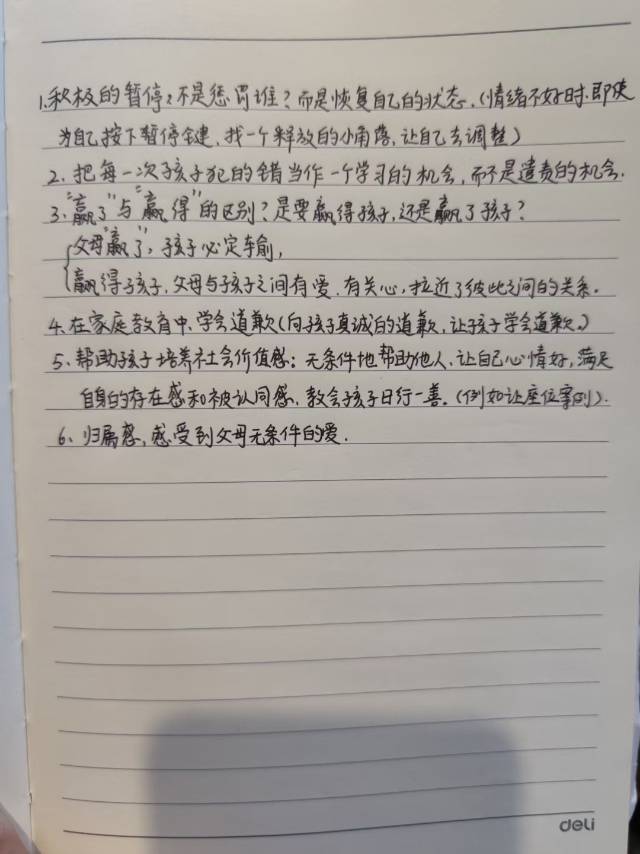 1.积极的暂停：不是惩罚谁？而是恢复自己的状态.(情绪不好时.即使
为自己按下暂停键、找一个释放的小角落,让自己去调整)
2、把每一次孩子犯的错当作一个学习的机会,而不是谴责的机会.
3、"赢了"与"赢得"的区别？是要赢得孩子,还是赢了孩子？
父母"赢了",孩子必定车俞,
赢得孩子,父母与孩子之间有爱.有关心,拉近了彼此之间的关系.
4、在家庭教育中,学会道歉(向孩子真诚的道歉,让孩子学会道歉.)
5、帮助孩子培养社会价值感：无条件地帮助他人、让自己心情好,满足
自身的存在感和被认同感、教会孩子日行一善.(例如让座位案例).
6、归属感,感受到父母无条件的爱.
deli